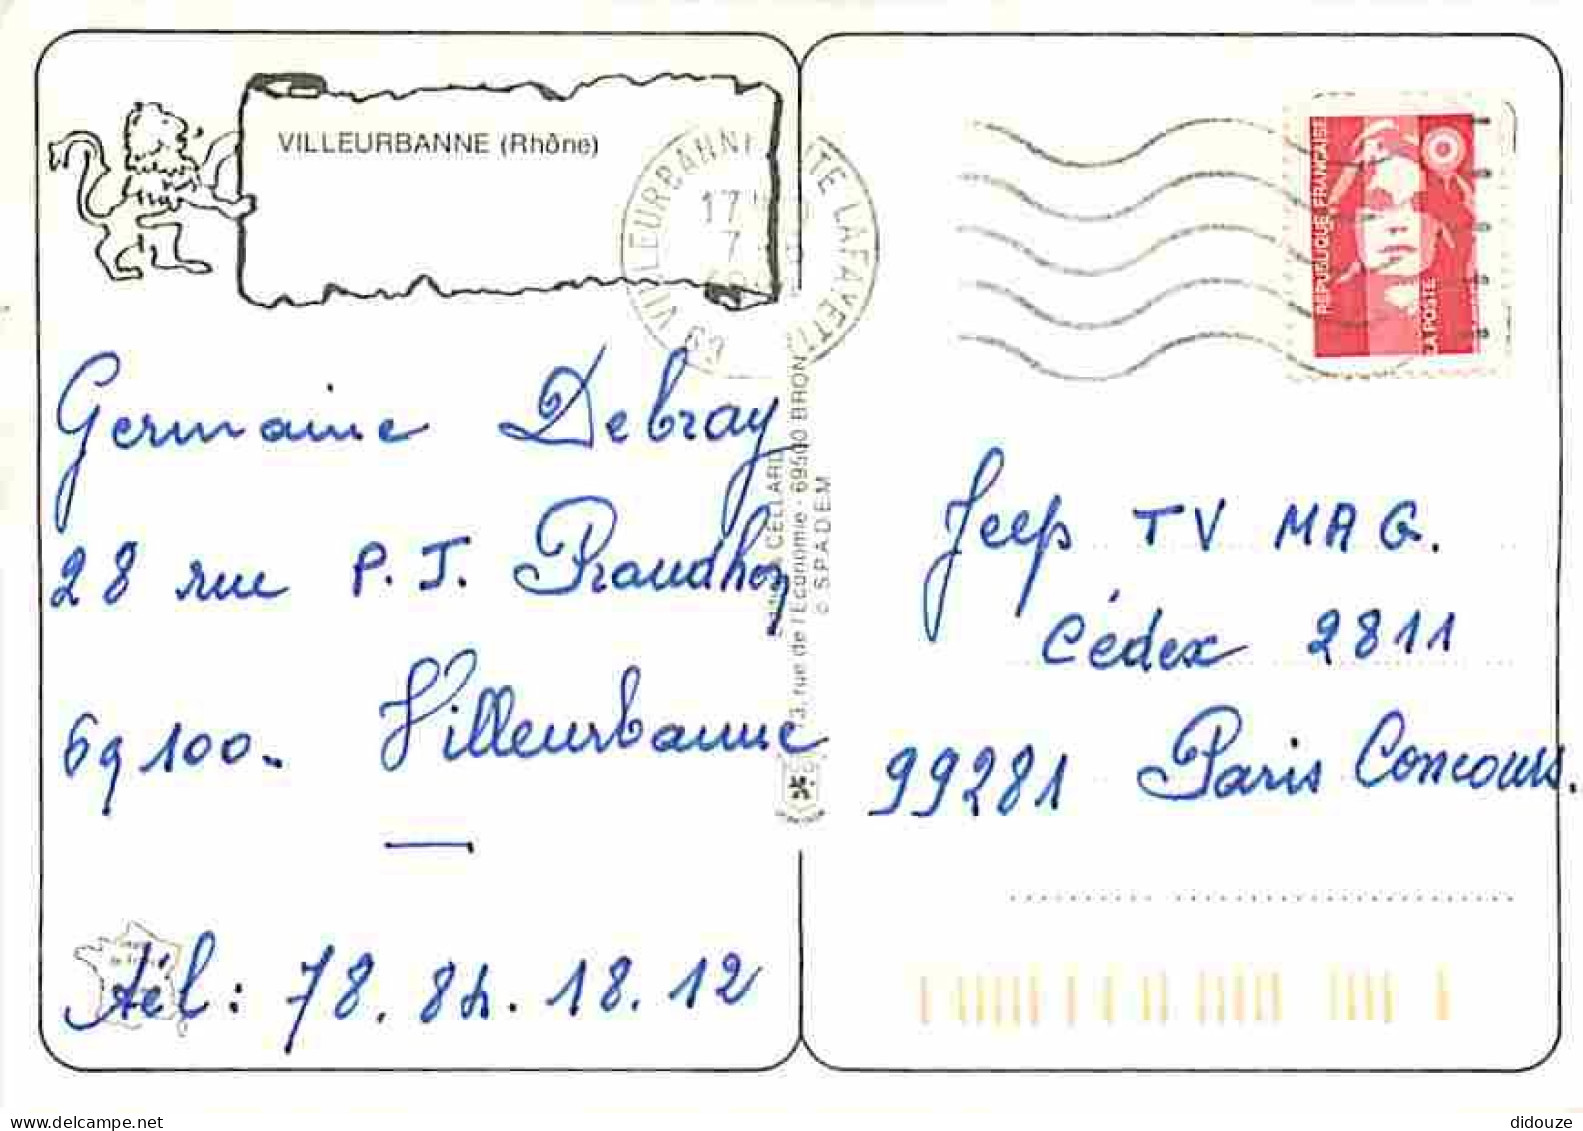 VILLEURBANNE (Rhône)
69 VILLEURBANNE
LAFAYETTE
17
7
RÉPUBLIQUE FRANÇAISE
LA POSTE
Germaine Debray
28 rue P. J. Proudhon
69100. Villeurbanne
Tél : 78. 84. 18. 12
Editions CELLARD
13, rue de l'Economie - 69500 BRON
© S.P.A.D.E.M
Jeep TV MAG.
Cédex 2811
99281 Paris Concours.
didouze